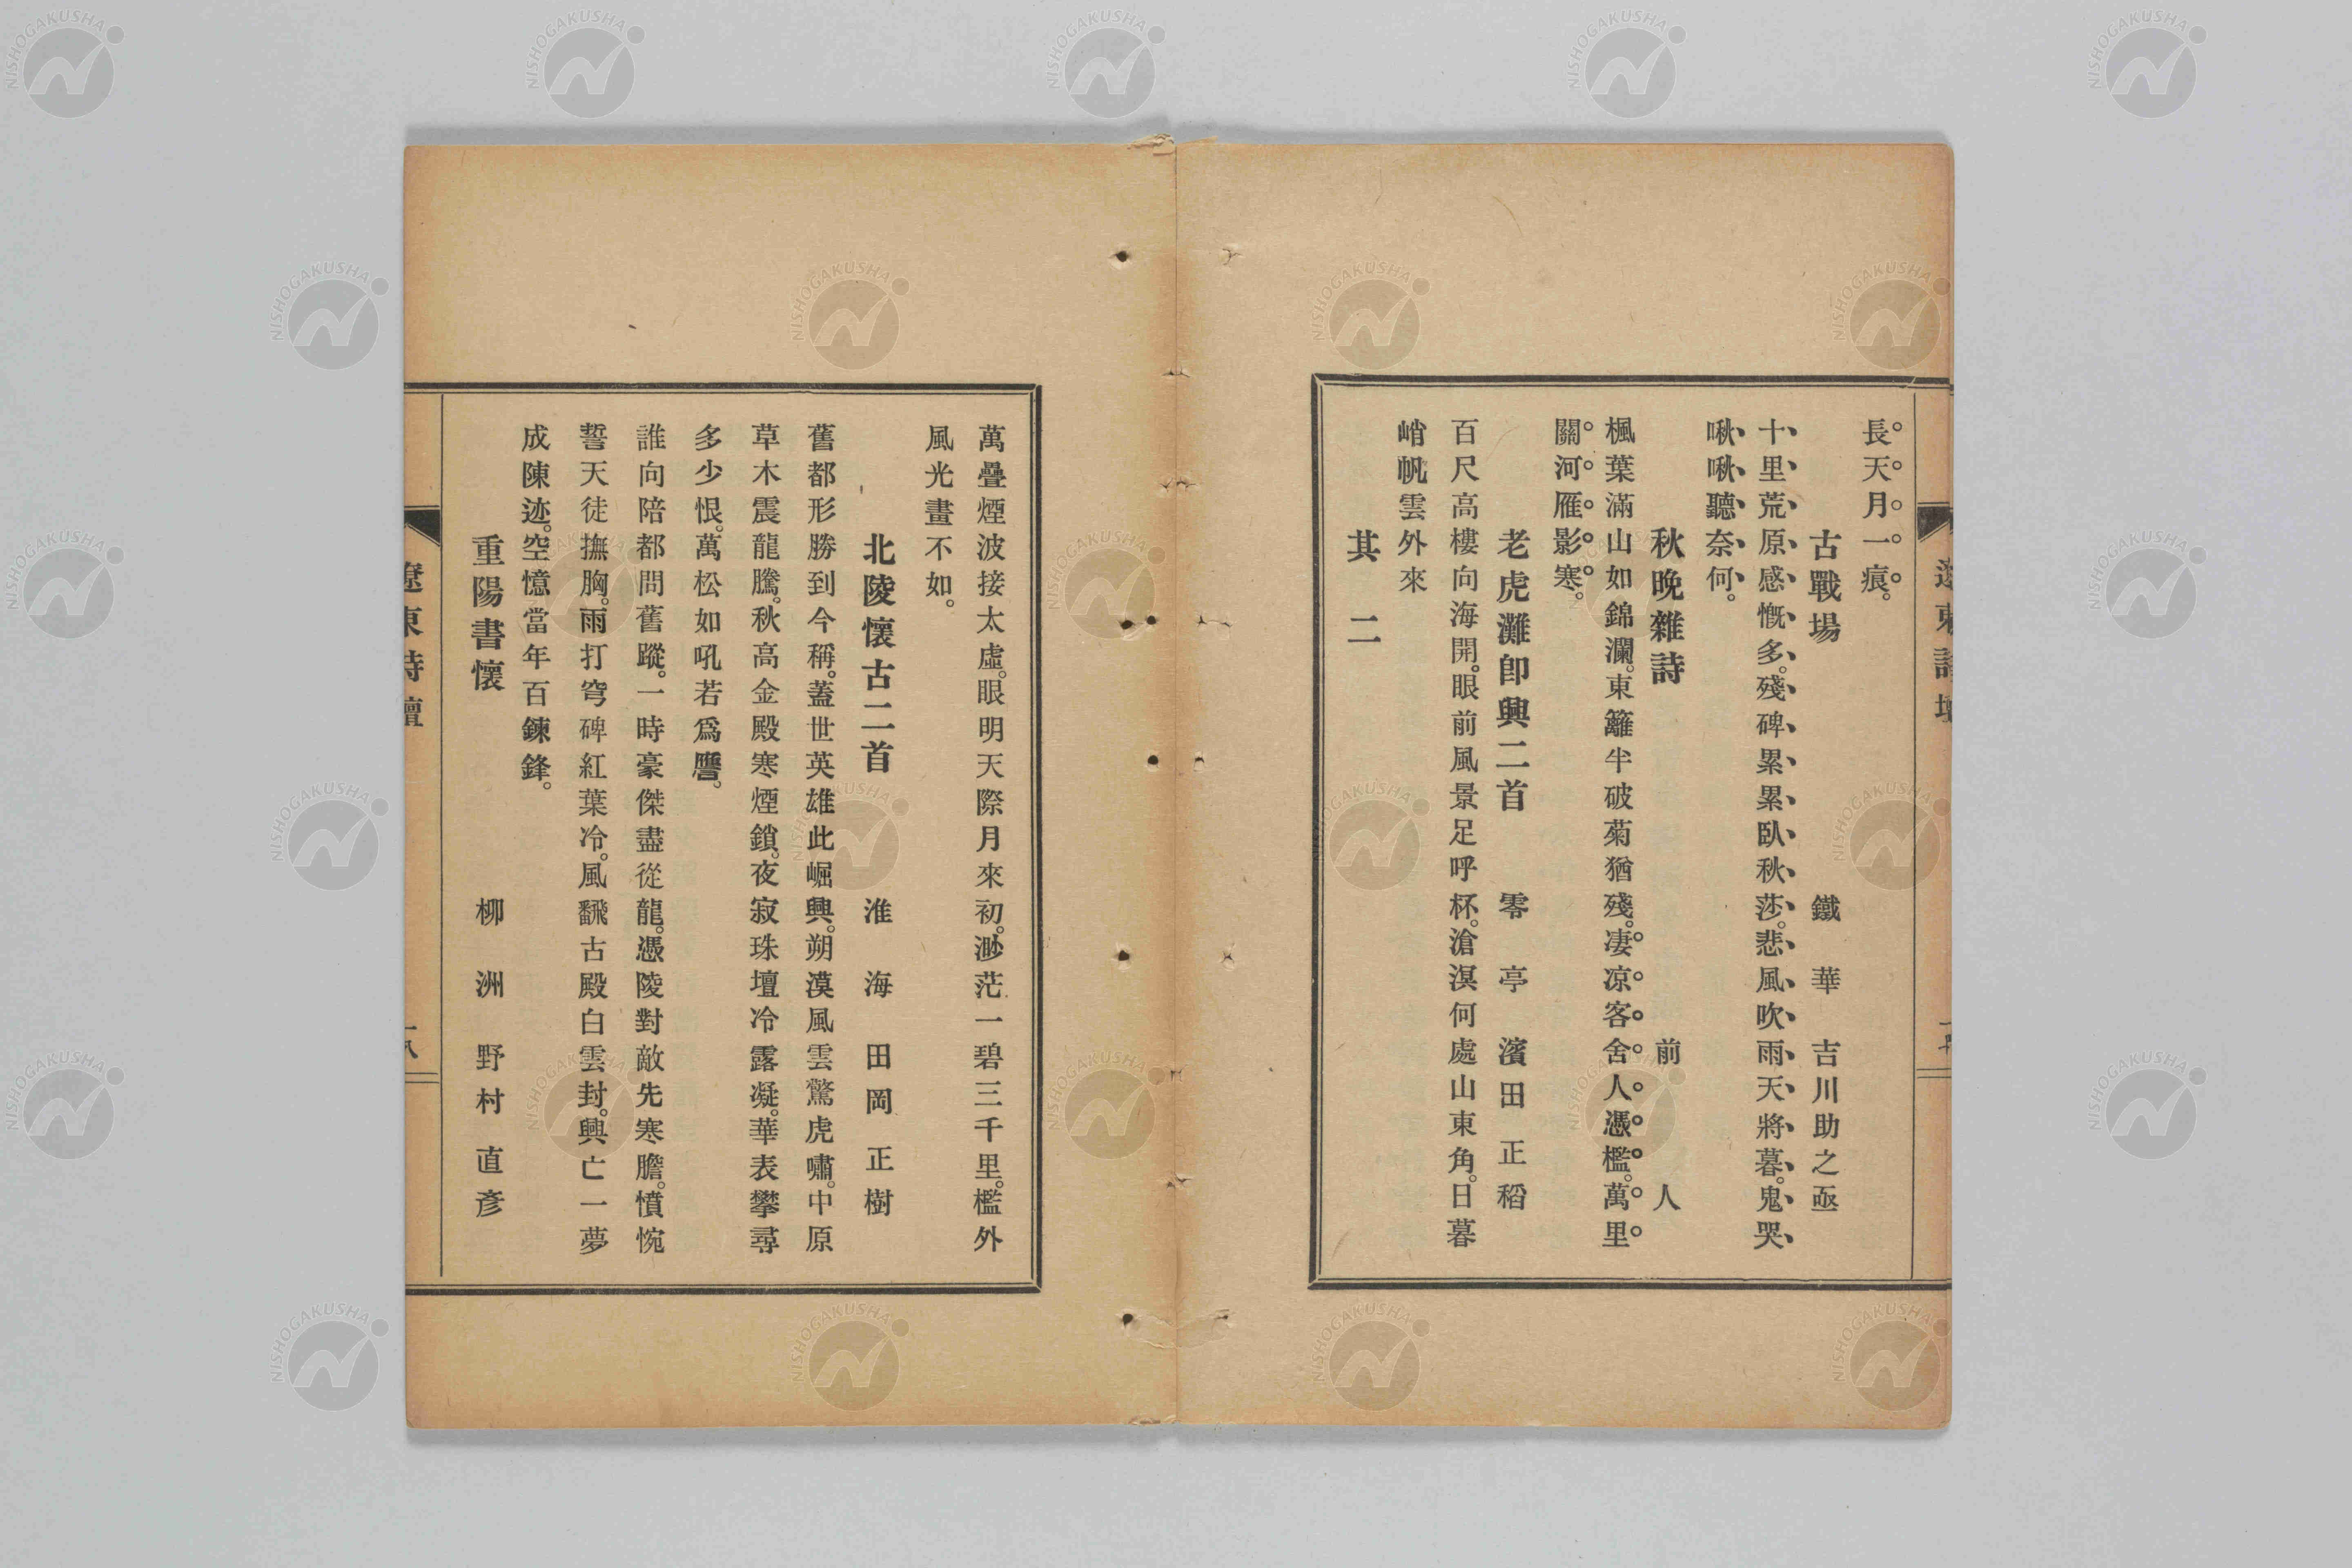 長天月一痕。
古戰場 鐵華 吉川助之亟
十里荒原感慨多。殘碑累累臥秋莎。悲風吹雨天將暮。鬼哭
啾啾聽奈何。
秋晚雜詩 前人
楓葉滿山如錦瀾。東籬半破菊猶殘。凄凉客舍人憑檻。萬里
關河雁影寒。
老虎灘卽興二首 零亭 濱田正稻
百尺高樓向海開。眼前風景足呼杯。滄溟何處山東角。日暮
峭帆雲外來
其二
萬疊煙波接太虛。眼明天際月來初。渺茫一碧三千里。檻外
風光畫不如。
北陵懷古二首 淮海 田岡正樹
舊都形勝到今稱。蓋世英雄此崛興。朔漠風雲驚虎嘯。中原
草木震龍騰。秋高金殿寒煙鎖。夜寂珠壇冷露凝。華表攀尋
多少恨。萬松如吼若爲譍。
誰向陪都問舊蹤。一時豪傑盡從龍。憑陵對敵先寒膽。憤惋
誓天徒撫胸。雨打穹碑紅葉冷。風飜古殿白雲封。興亡一夢
成陳迹。空憶當年百鍊鋒。
重陽書懷 柳洲 野村直彥
遼東詩壇
十八
NISHOGAKUSHA